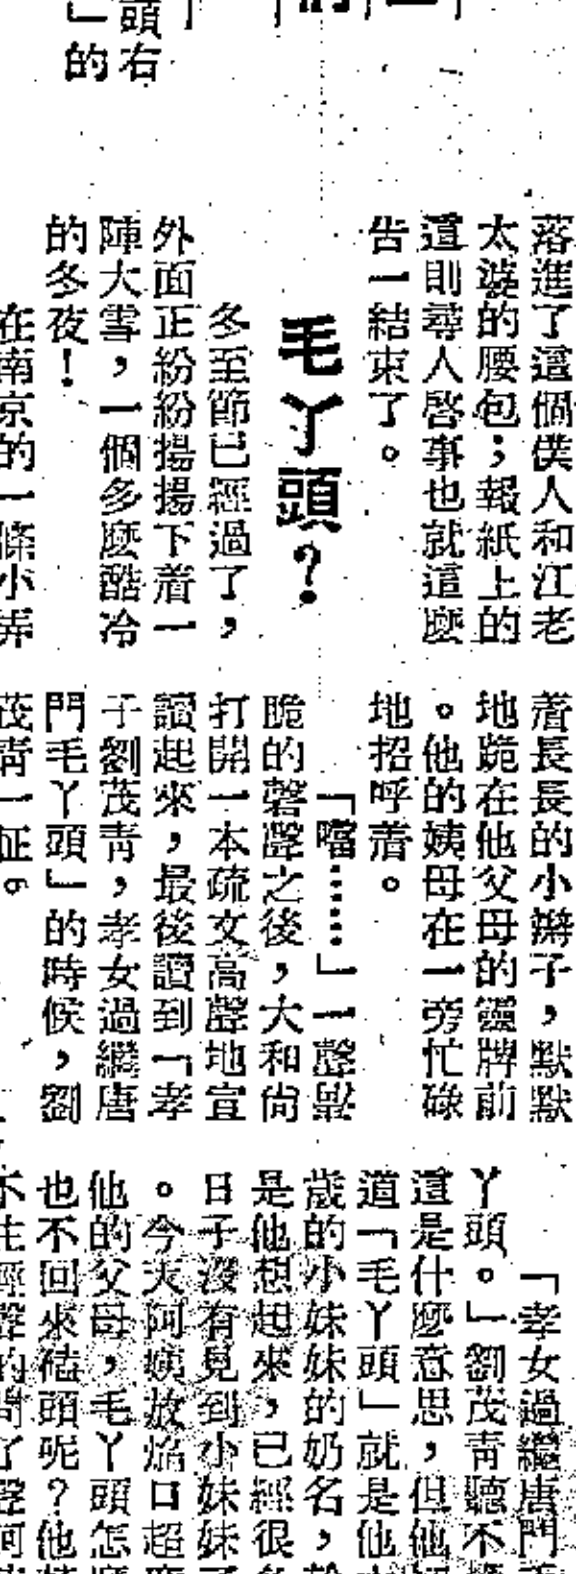 頭右
」的
落進了這個僕人和江老
太婆的腰包；報紙上的
這則尋人啓事也就這麼
告一結束了。
毛丫頭？
冬至節已經過了，
外面正紛紛揚揚下着一
陣大雪，一個多麼酷冷
的冬夜！
在南京的一條小弄
着長長的小辮子，默默
地跪在他父母的靈牌前
。他的姨母在一旁忙碌
地招呼着。
「噹……」一聲
脆的磬聲之後，大和尙
打開一本疏文高聲地宣
讀起來，最後讀到「孝
子劉茂靑，孝女過繼唐
門毛丫頭」的時候，劉
茂靑一怔。
「孝女過繼唐門
丫頭。」劉茂靑聽不
這是什麼意思，但他
道「毛丫頭」就是他
歲的小妹妹的奶名，
是他想起來，已經很
日子沒有見到小妹妹
。今天阿姨放焰口超
他的父母，毛丫頭怎
也不回來磕頭呢？他